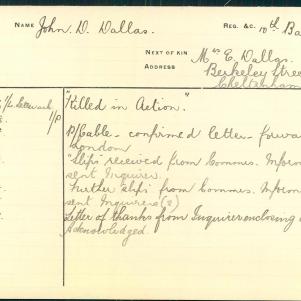 NAME John. D. Dallas. REG. &C. 10th Ba
NEXT OF KIN Mrs E. Dallas.
ADDRESS Berkeley Stree
Cheltenham
"Killed in Action".
P/Cable - confirmed letter - forwar
London
"Slip" received from Commrs. Infor
sent Inquirer.
Further "slip" from Commrs. Infor
sent Inquirers (2)
Letter of thanks from Inquirer enclosing
Acknowledged.